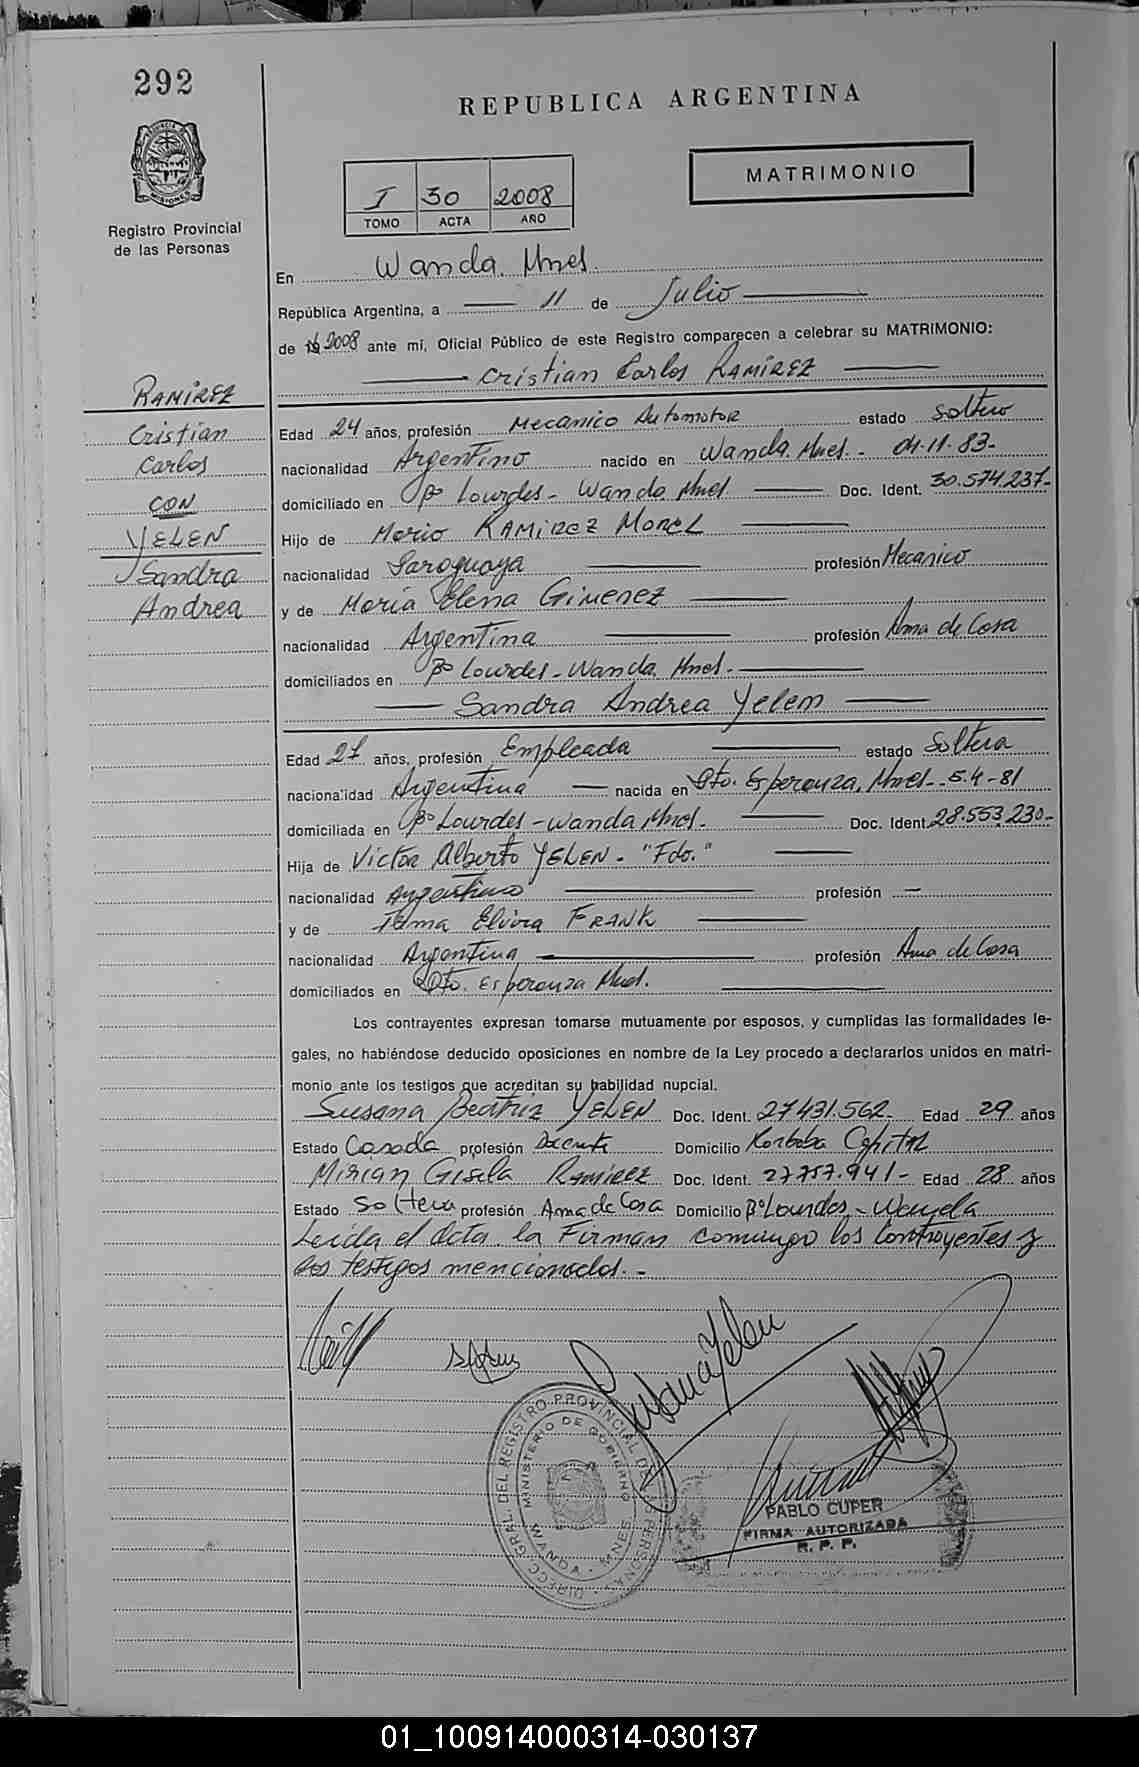 292
REPUBLICA ARGENTINA
MATRIMONIO
I 30 2008
TOMO ACTA AÑO
Registro Provincial
de las Personas
En Wanda. Mnes.
República Argentina, a 11 de Julio
de 2008 ante mí, Oficial Público de este Registro comparecen a celebrar su MATRIMONIO:
Cristian Carlos RAMIREZ
RAMIREZ
Cristian
Carlos
CON
YELEN
Sandra
Andrea
Edad 24 años, profesión Mecanico Automotor estado soltero
nacionalidad Argentino nacido en Wanda. Mnes. - 04-11-83-
domiciliado en Bº Lourdes - Wanda Mnes. Doc. Ident. 30.574.237-
Hijo de Mario RAMIREZ MOREL
nacionalidad Paraguaya profesión Mecanico
y de Maria Elena GIMENEZ
nacionalidad Argentina profesión Ama de Casa
domiciliados en Bº Lourdes - Wanda. Mnes.-
Sandra Andrea Yelem
Edad 27 años, profesión Empleada estado Soltera
nacionalidad Argentina nacida en Pto. Esperanza, Mnes.- 5-4-81
domiciliada en Bº Lourdes - Wanda Mnes. Doc. Ident. 28.553.230-
Hija de Victor Alberto YELEN - "Fdo."
nacionalidad Argentino profesión —
y de Elvira FRANK
nacionalidad Argentina profesión Ama de Casa
domiciliados en Pto. Esperanza Mnes.
Los contrayentes expresan tomarse mutuamente por esposos, y cumplidas las formalidades le-
gales, no habiéndose deducido oposiciones en nombre de la Ley procedo a declararlos unidos en matri-
monio ante los testigos que acreditan su habilidad nupcial.
Susana Beatriz YELEN Doc. Ident. 27431.562- Edad 29 años
Estado Casada profesión Docente Domicilio Kordoba Capital
Mirian Gisela Ramirez Doc. Ident. 27.757.941- Edad 28 años
Estado Soltera profesión Ama de Casa Domicilio Bº Lourdes - Wanda
Leida el Acta, la Firman conmigo los Contrayentes y
los testigos mencionados.-
Susana Yelen
DIRECC. GRAL. DEL REGISTRO PROVINCIAL DE LAS PERSONAS
MINISTERIO DE GOBIERNO
WANDA - MNES
PABLO CUPER
FIRMA AUTORIZADA
R. P. P.
01_100914000314-030137